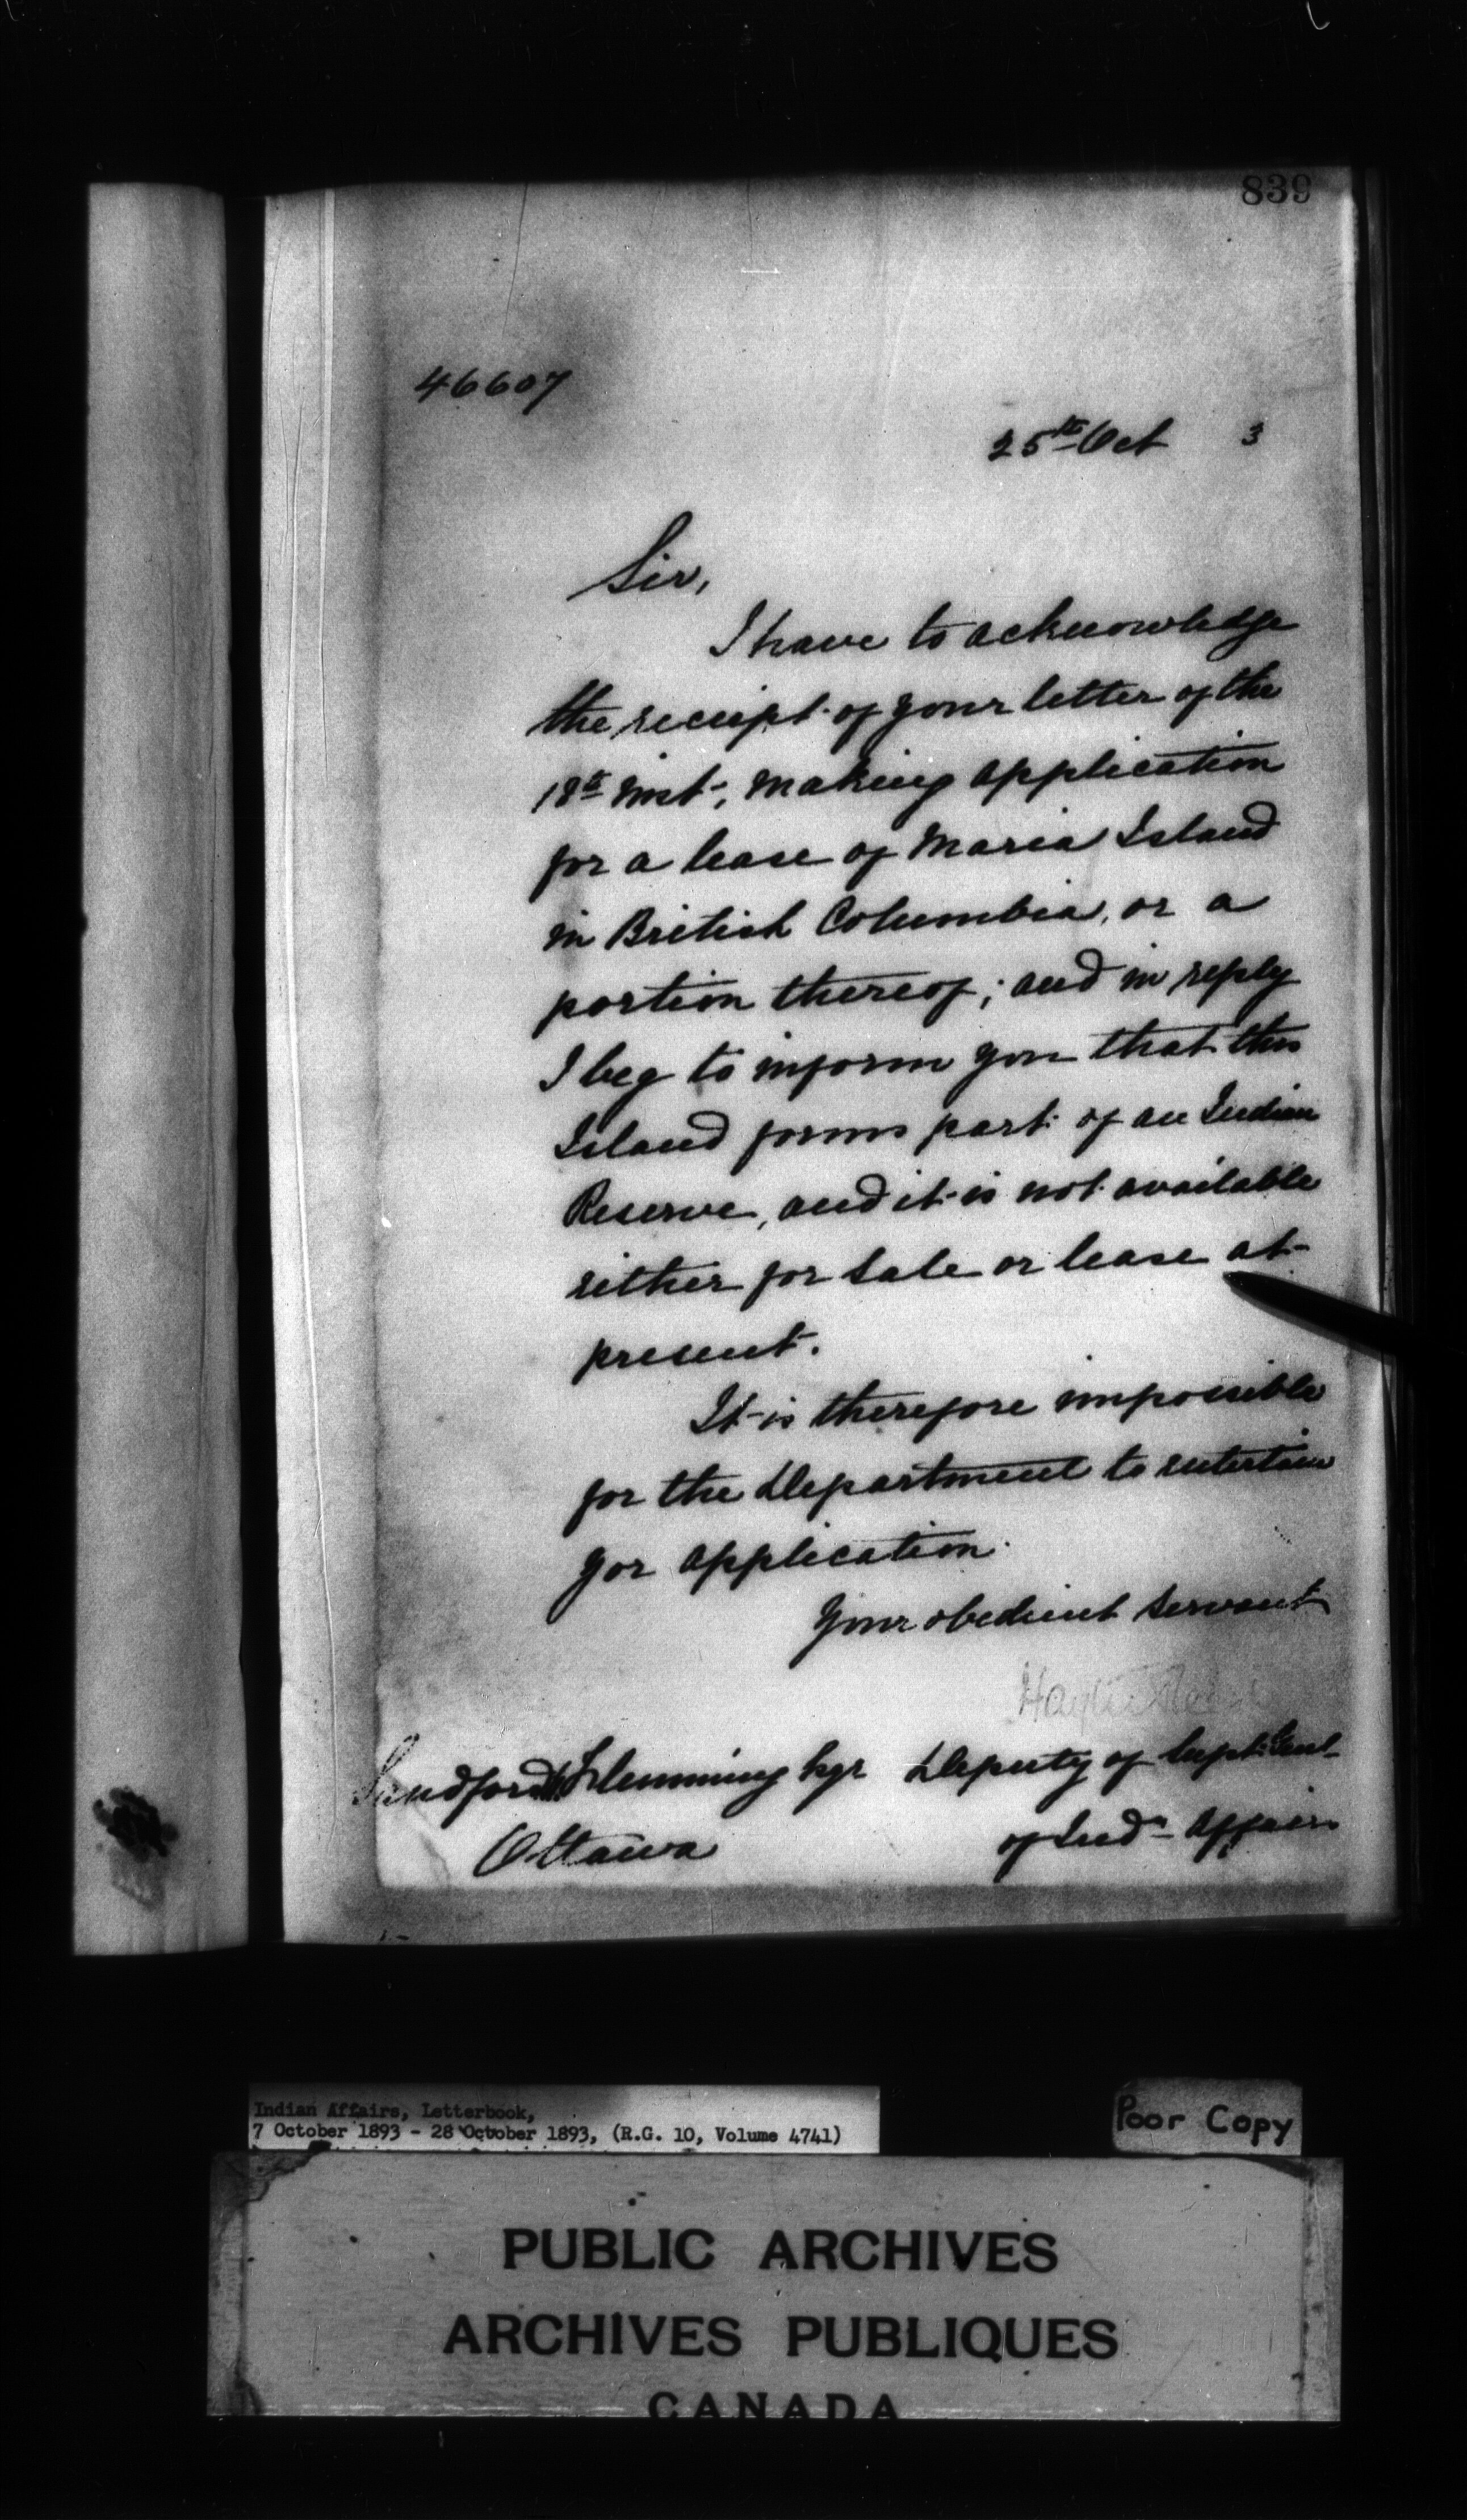 839
46607
25th Oct 3
Sir,
I have to acknowledge
the receipt of your letter of the
18th inst., making application
for a lease of Maria Island
in British Columbia, or a
portion thereof; and in reply
I beg to inform you that this
Island forms part of an Indian
Reserve, and it is not available
either for sale or lease at
present.
It is therefore impossible
for the Department to entertain
yor application.
Your obedient servant
Sandford Flemming Deputy of Supt. Genl
Ottawa of Indn Affairs
Indian Affairs, Letterbook,
7 October 1893 - 28 October 1893, (R.G. 10, Volume 4741)
Poor Copy
PUBLIC ARCHIVES
ARCHIVES PUBLIQUES
CANADA